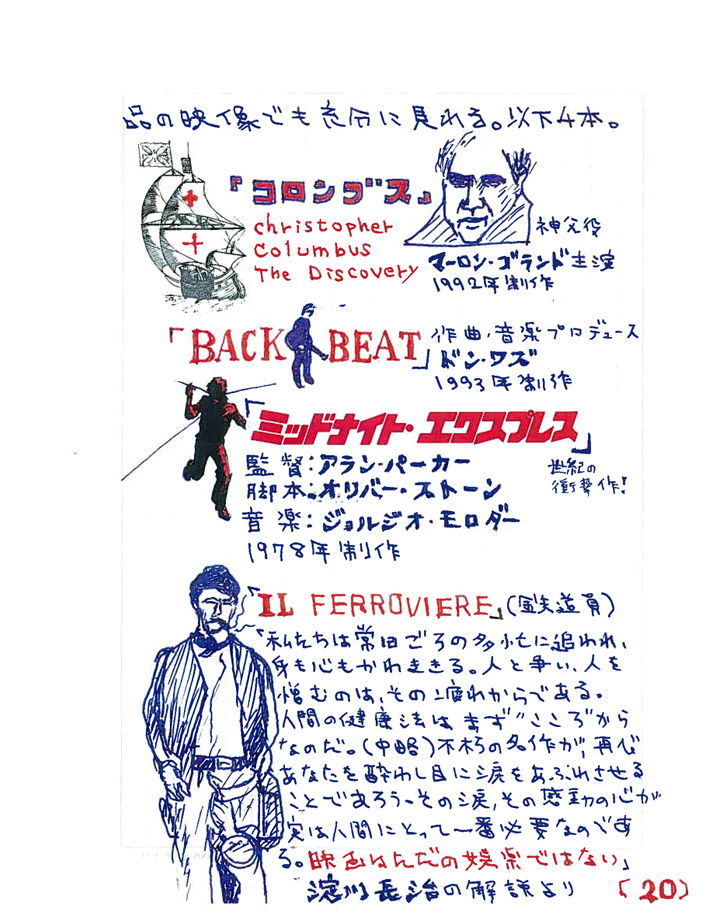 品の映像でも充分に見れる。以下4本。
『コロンブス』
christopher
Columbus
The Discovery
神父役
マーロン・ブランド主演
1992年制作
「BACK BEAT」
作曲・音楽プロデュース
ドン・ワズ
1993年制作
「ミッドナイト・エクスプレス」
監督:アラン・パーカー
脚本:オリバー・ストーン
音楽:ジョルジオ・モロダー
1978年制作
世紀の
衝撃作!
「IL FERROVIERE」(鉄道員)
「私たちは常日ごろの多忙に追われ、
身も心もかわききる。人と争い、人を
憎むのは、その疲れからである。
人間の健康法はまず"こころ"から
なのだ。(中略)不朽の名作が、再び
あなたを酔わし目に涙をあふれさせる
ことであろう、その涙、その感動の心が
実は人間にとって一番必要なのであ
る。映画はただの娯楽ではない」
淀川長治の解説より
(20)